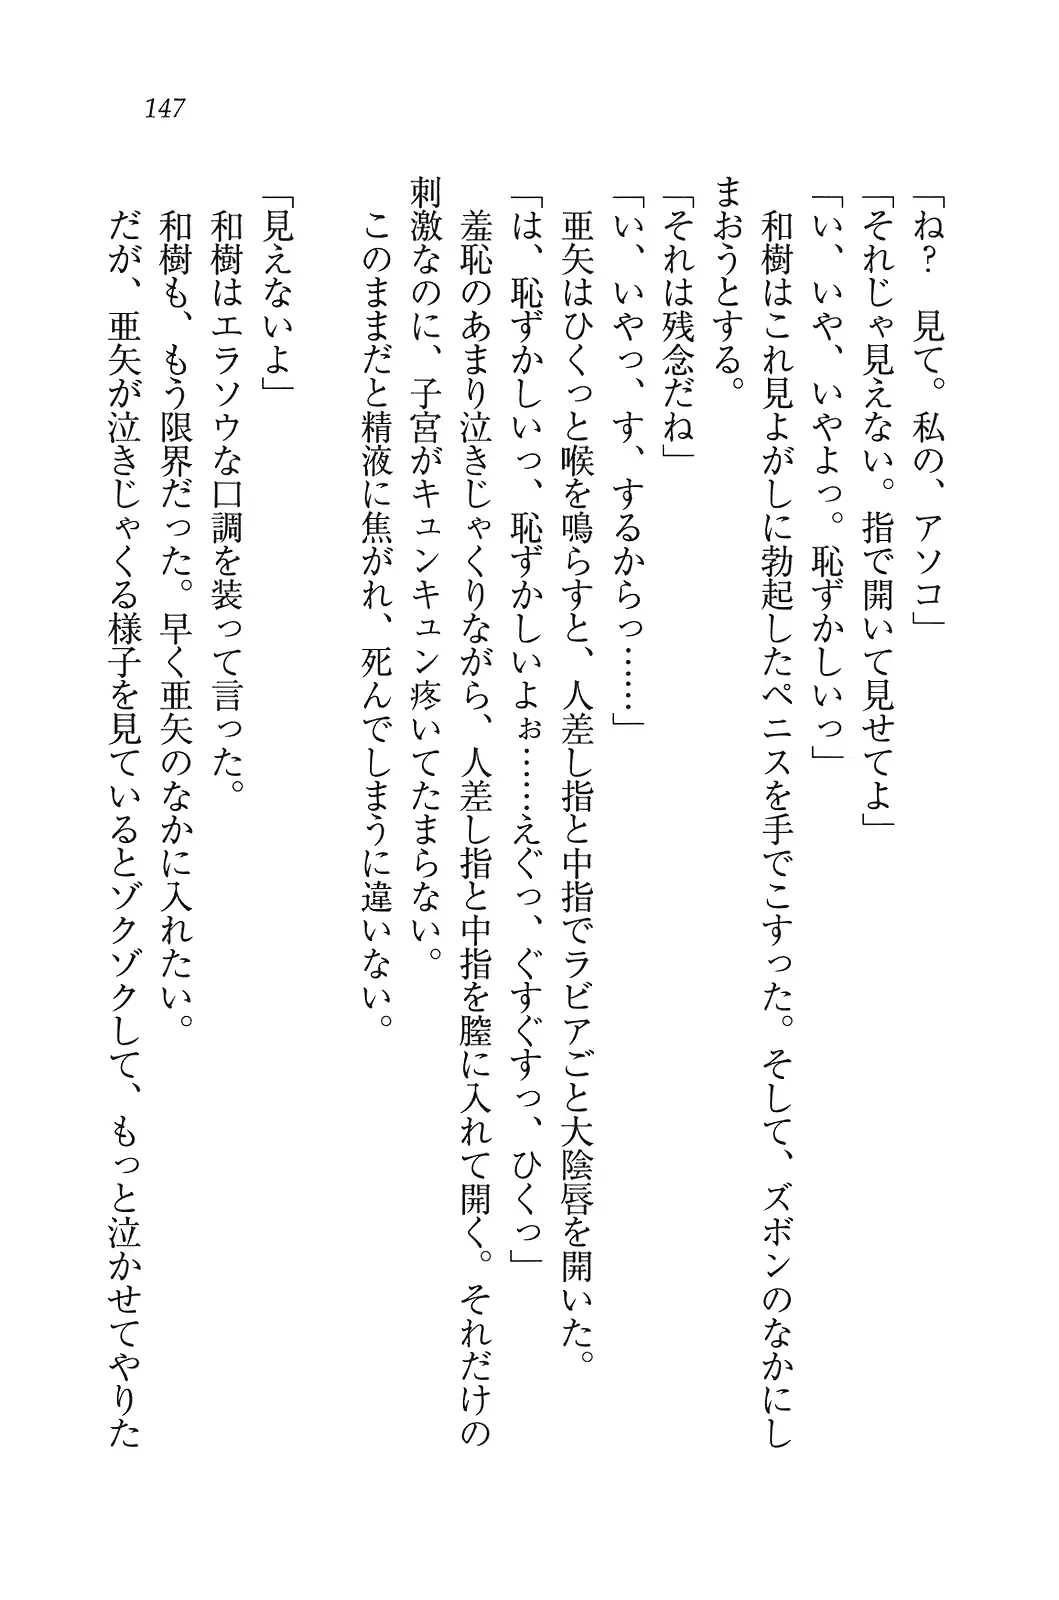 147
「ね？　見て。私の、アソコ」
「それじゃ見えない。指で開いて見せてよ」
「い、いや、いやよっ。恥ずかしいっ」
和樹はこれ見よがしに勃起したペニスを手でこすった。そして、ズボンのなかにし
まおうとする。
「それは残念だね」
「い、いやっ、す、するからっ……」
亜矢はひくっと喉を鳴らすと、人差し指と中指でラビアごと大陰唇を開いた。
「は、恥ずかしいっ、恥ずかしいよぉ……えぐっ、ぐすぐすっ、ひくっ」
羞恥のあまり泣きじゃくりながら、人差し指と中指を膣に入れて開く。それだけの
刺激なのに、子宮がキュンキュン疼いてたまらない。
このままだと精液に焦がれ、死んでしまうに違いない。
「見えないよ」
和樹はエラソウな口調を装って言った。
和樹も、もう限界だった。早く亜矢のなかに入れたい。
だが、亜矢が泣きじゃくる様子を見ているとゾクゾクして、もっと泣かせてやりた